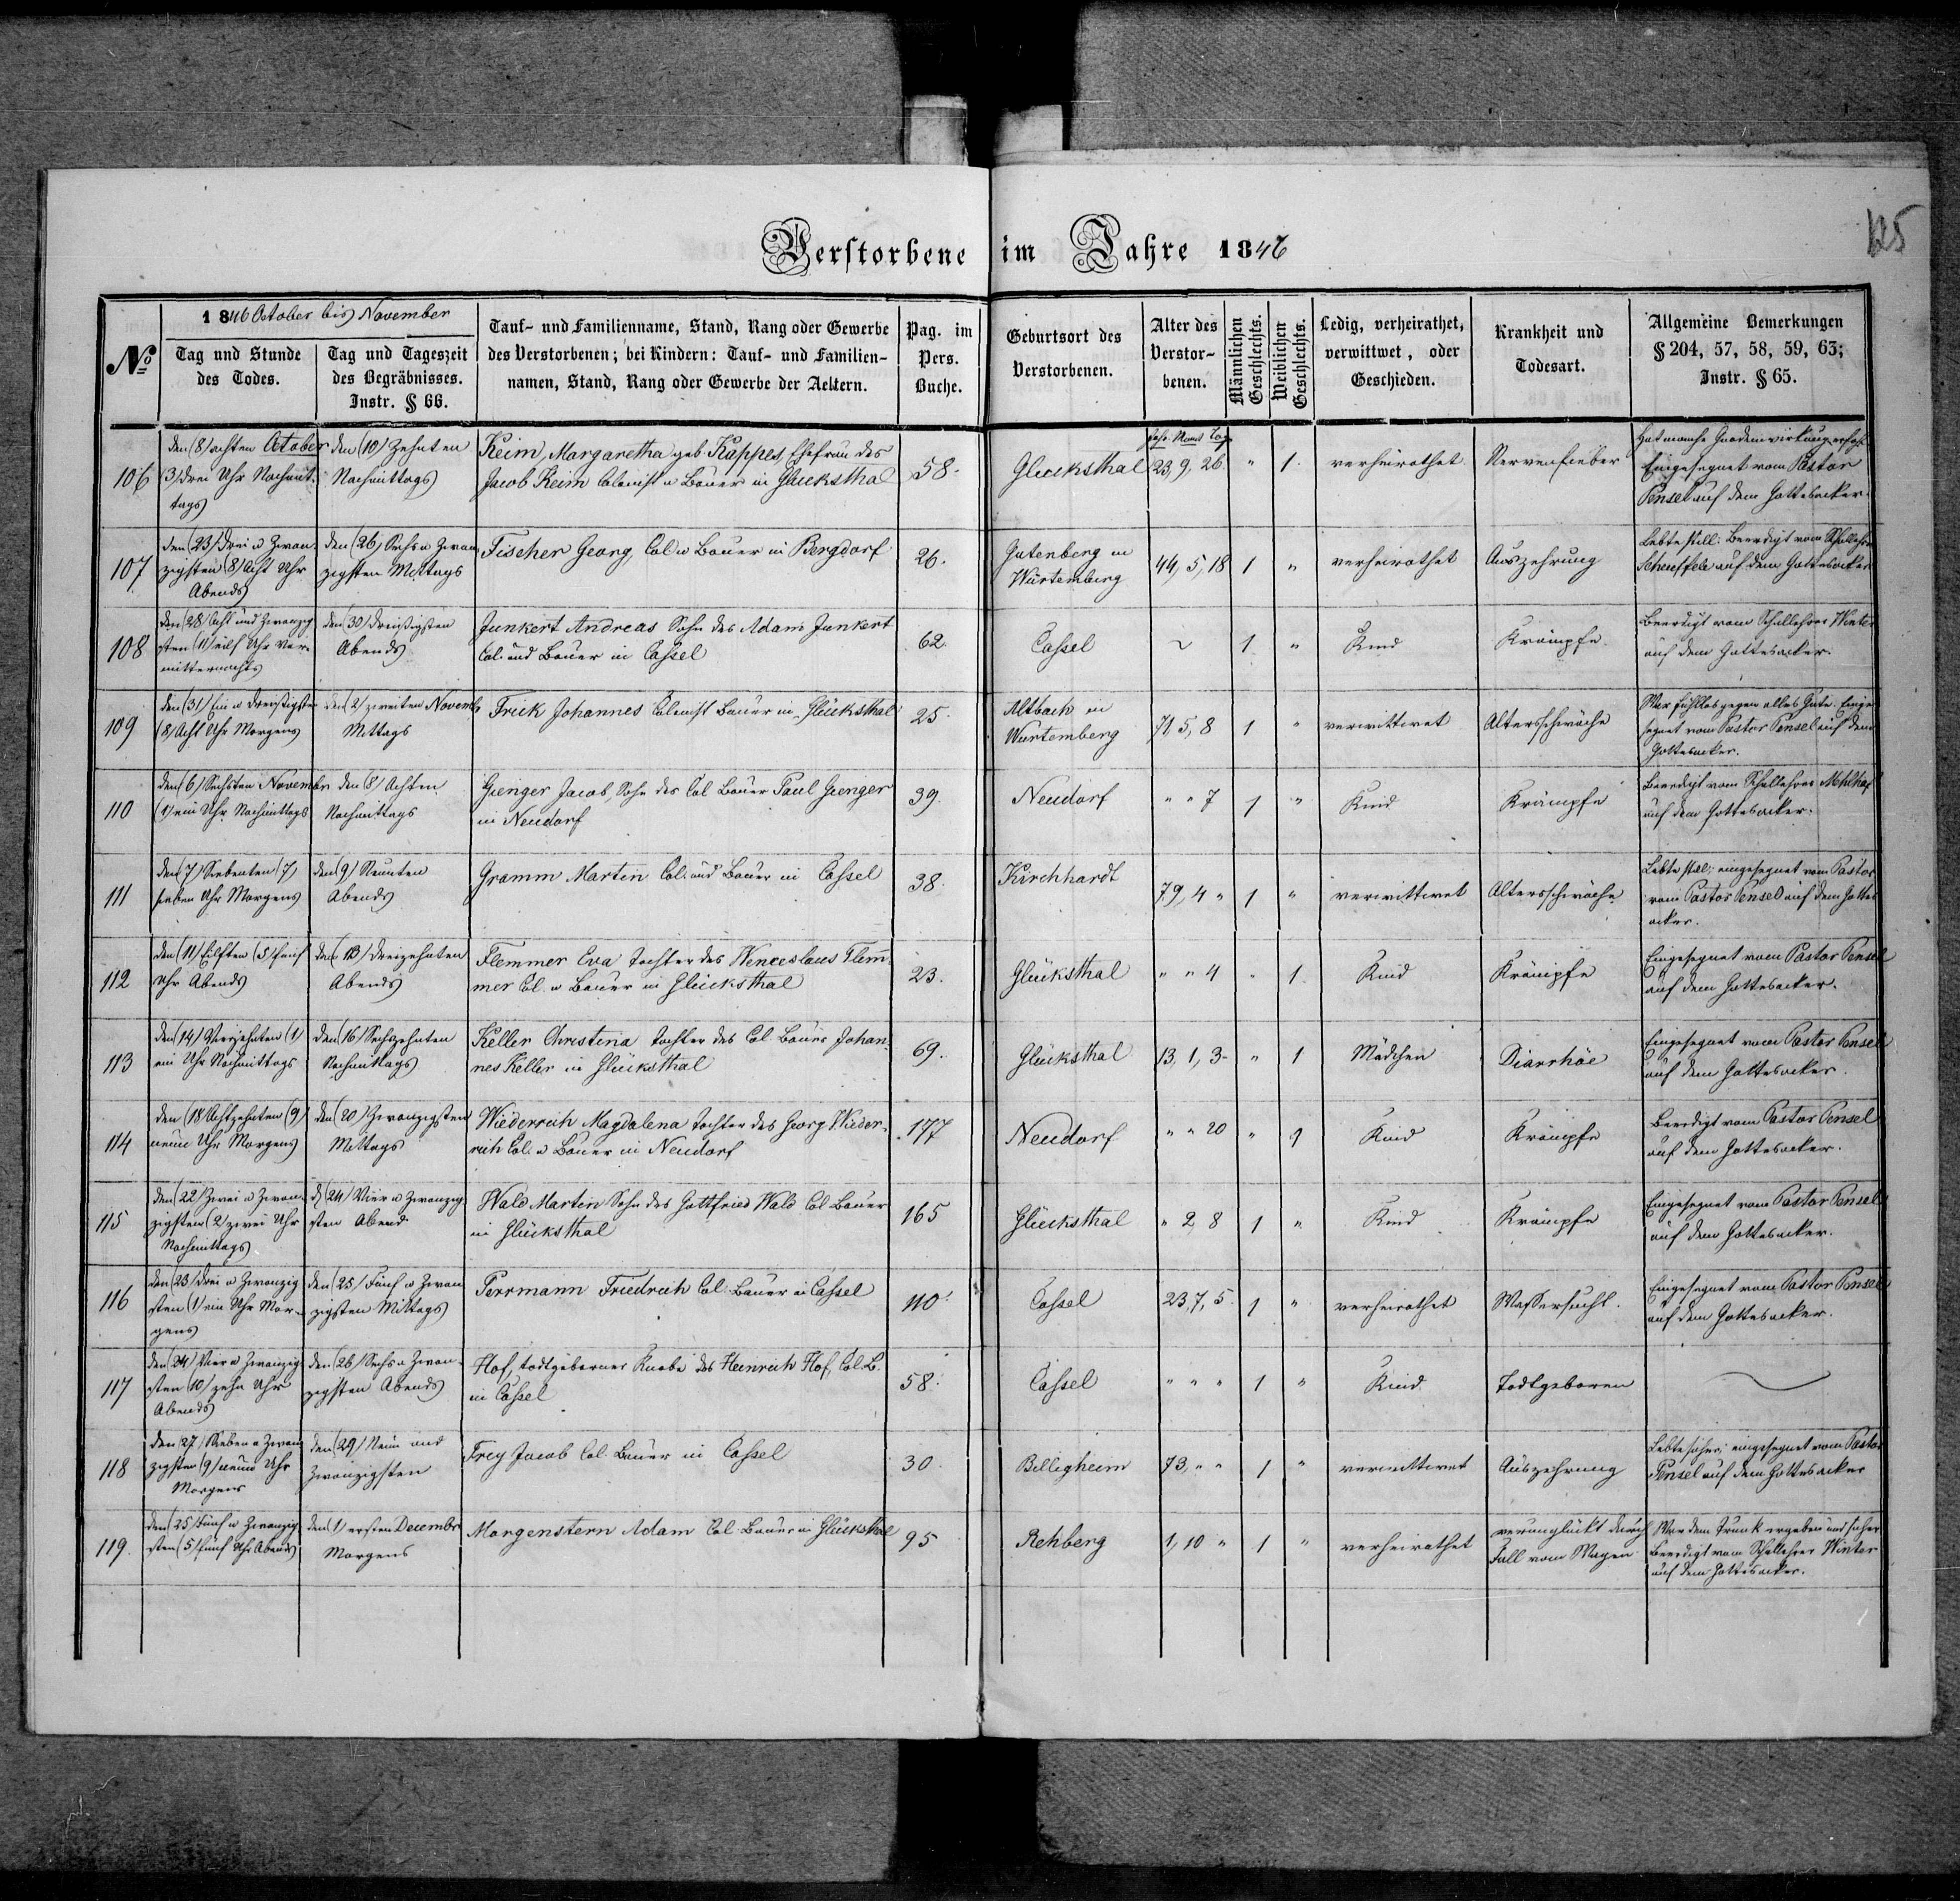 Verstorbene im Jahre 1846
125
1846 October bis November
No
Tag und Stunde
des Todes.
Tag und Tageszeit
des Begräbnisses.
Instr. § 66.
Tauf- und Familienname, Stand, Rang oder Gewerbe
des Verstorbenen; bei Kindern: Tauf- und Familien-
namen, Stand, Rang oder Gewerbe der Aeltern.
Pag. im
Pers.
Buche.
Geburtsort des
Verstorbenen.
Alter des
Verstor-
benen.
Männlichen
Geschlechts.
Weiblichen
Geschlechts.
Ledig, verheirathet,
verwittwet, oder
Geschieden.
Krankheit und
Todesart.
Allgemeine Bemerkungen
§ 204, 57, 58, 59, 63;
Instr. § 65.
106
den (8) achten October
(3) drei Uhr Nachmit-
tags
den (10) zehnten
Nachmittags
Keim, Margaretha geb Kappes, Ehefrau des
Jacob Keim Colonist u Bauer in Glücksthal
58.
Glücksthal
Jahr. Monat Tag
23, 9, 26.
" 1.
verheirathet
Nervenfieber
Hat manche Gnadenwirkung
Eingesegnet vom Pastor
Pensel auf dem Gottesacker.
107
den (23) drei u Zwan-
zigsten (8) Acht Uhr
Abends
den (26) Sechs u Zwan
zigsten Mittags
Fischer Georg, Col u Bauer in Bergdorf
26.
Gutenberg in
Würtemberg
44, 5, 18
1 "
verheirathet
Auszehrung
Lebte still. Beerdigt vom Schullehrer
Scheuffele auf dem Gottesacker
108
den (28) Acht und Zwanzig
sten (11) eilf Uhr Vor-
mitternachts
den (30) dreißigsten
Abends
Junkert Andreas Sohn des Adam Junkert
Col. und Bauer in Cassel
62.
Cassel
1 "
Kind
Krämpfe.
Beerdigt vom Schullehrer Winter
auf dem Gottesacker.
109
den (31) Ein u dreißigsten
(8) Acht Uhr Morgens
den (2) zweiten Novemb
Mittags
Frick Johannes Colonist Bauer in Glücksthal
25.
Altbach in
Würtemberg
71, 5, 8
1 "
verwittwet
Altersschwäche
War fühllos gegen alles Gute. Einge
segnet vom Pastor Pensel auf dem
Gottesacker.
110
den (6) Sechsten November
(1) ein Uhr Nachmittags
den (8) Achten
Nachmittags
Gienger Jacob, Sohn des Col Bauer Paul Gienger
in Neudorf
39.
Neudorf
" " 7
1 "
Kind
Krämpfe
Beerdigt vom Schullehrer Mehlhaf
auf dem Gottesacker.
111
den (7) Siebenten (7)
sieben Uhr Morgens
den (9) Neunten
Abends
Gramm Martin Col. und Bauer in Cassel
38.
Kirchhardt
79, 4 "
1 "
verwittwet
Altersschwäche
Lebte still; eingesegnet vom Pastor
vom Pastor Pensel auf dem Gottes
acker.
112
den (11) Eilften (5) fünf
Uhr Abends
den (13) dreizehnten
Abends
Flemmer Eva Tochter des Wenceslaus Flem-
mer Col. u Bauer in Glücksthal
23.
Glücksthal
" " 4
" 1.
Kind
Krämpfe
Eingesegnet vom Pastor Pensel
auf dem Gottesacker.
113
den (14) Vierzehnten (1)
ein Uhr Nachmittags
den (16) Sechzehnten
Nachmittags
Keller Christina Tochter des Col Bauer Johan-
nes Keller in Glücksthal
69.
Glücksthal
13, 1, 3-
" 1
Mädchen
Diarrhöe
Eingesegnet vom Pastor Pensel
auf dem Gottesacker.
114
den (18) Achtzehnten (9)
neun Uhr Morgens
den (20) Zwanzigsten
Mittags
Wiederrich Magdalena Tochter des Georg Wieder-
rich Col. u Bauer in Neudorf
177
Neudorf
" " 20
" 1
Kind
Krämpfe
Beerdigt vom Pastor Pensel
auf dem Gottesacker.
115
den (22) Zwei u Zwan-
zigsten (2) zwei Uhr
Nachmittags
d (24) Vier u Zwanzig
sten Abend
Wald Martin Sohn des Gottfried Wald Col Bauer
in Glücksthal
165
Glücksthal
" 2, 8
1 "
Kind
Krämpfe
Eingesegnet vom Pastor Pensel
auf dem Gottesacker.
116
den (23) drei u Zwanzig
sten (1) ein Uhr Mor-
gens
den (25) Fünf u Zwan
zigsten Mittags
Perrmann Friedrich Col. Bauer in Cassel
110.
Cassel
23, 7, 5.
1 "
verheirathet
Wassersucht.
Eingesegnet vom Pastor Pensel
auf dem Gottesacker.
117
den (24) Vier u Zwanzig
sten (10) zehn Uhr
Abends
den (26) Sechs u Zwan-
zigsten Abends
Hof, todtgeborner Knabe des Heinrich Hof, Col. B.
in Cassel
58.
Cassel
" " "
1 "
Kind
Todtgeboren
118
den (27) Sieben u Zwan
zigsten (9) neun Uhr
Morgens
den (29) Neun und
Zwanzigsten
Frey Jacob Col. Bauer in Cassel
30.
Billigheim
73, " "
1 "
verwittwet
Auszehrung
Lebte; eingesegnet vom Pastor
Pensel auf dem Gottesacker
119.
den (25) Fünf u Zwanzig
sten (5) fünf Uhr Abends
den (1) ersten December
Morgens
Morgenstern Adam Col. Bauer in Glücksthal
95
Rehberg
1, 10 "
1 "
verheirathet
verunglückt durch
Fall vom Wagen
War dem Trunk ergeben und
Beerdigt vom Schullehrer Winter
auf dem Gottesacker.